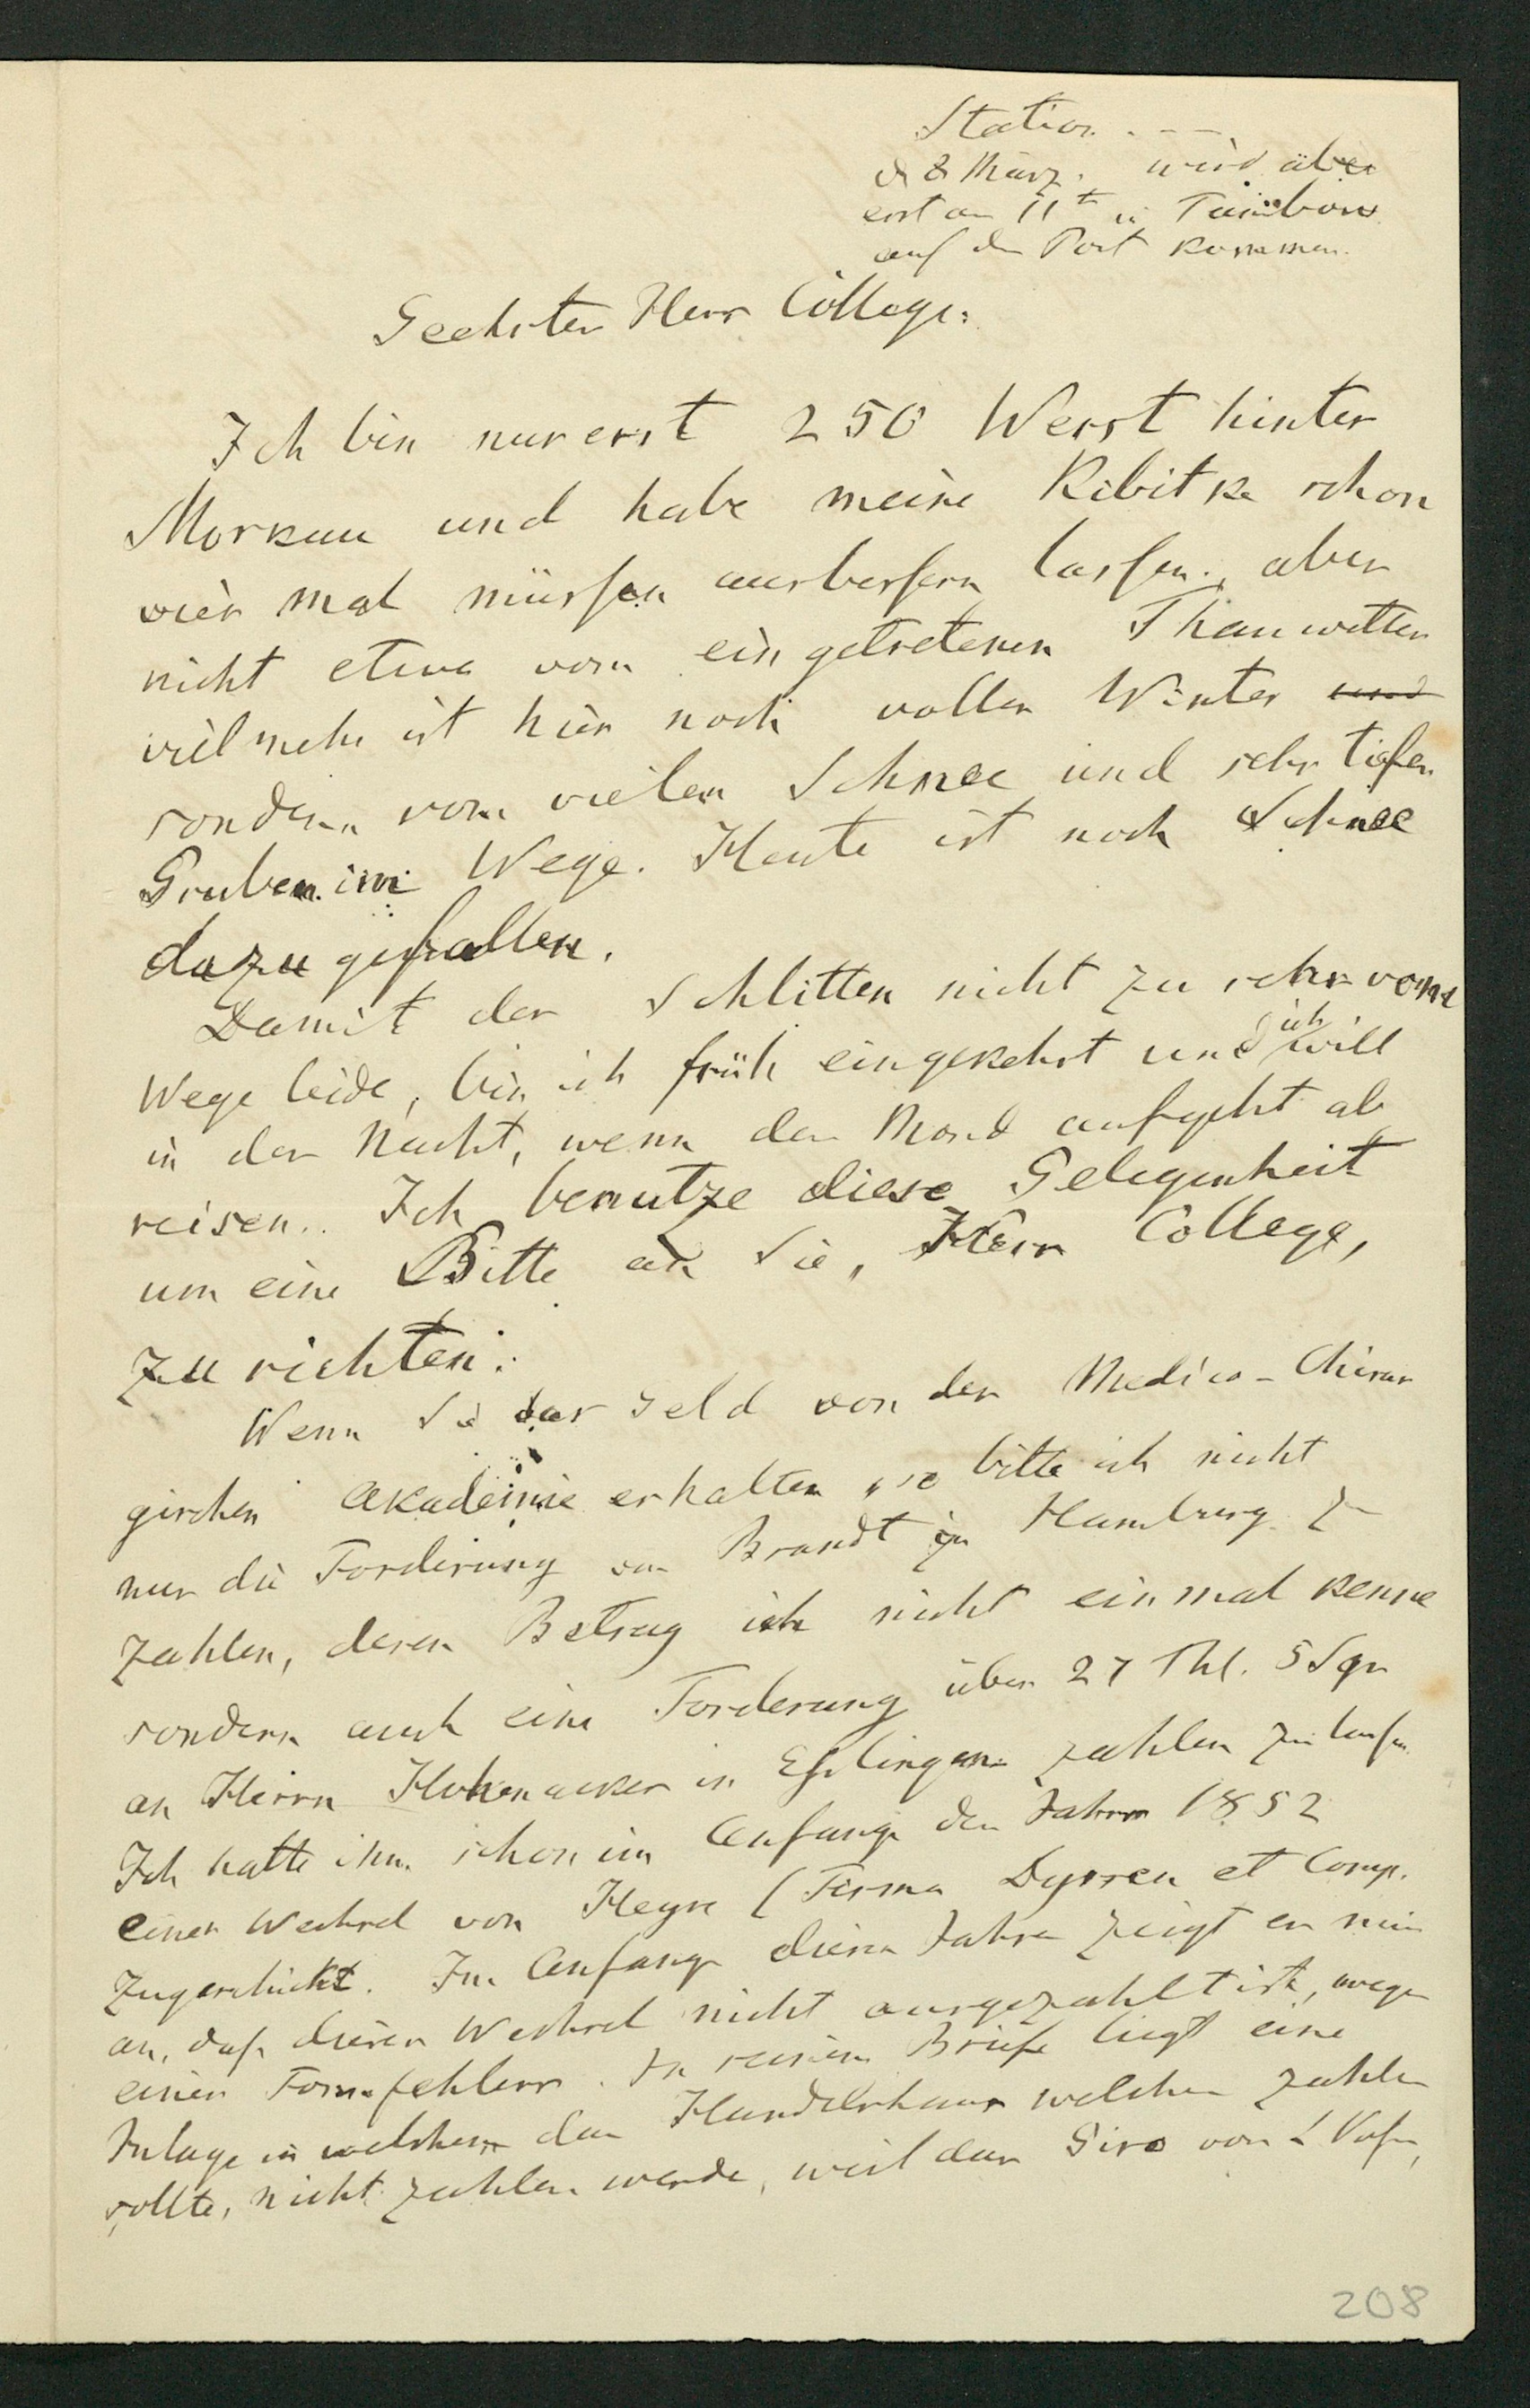 Station . - -
d 8 März. wird aber
erst am 11t in Tambow
auf die Post kommen.
Geehrter Herr College:
Ich bin nur erst 250 Werst hinter
Moskau und habe meine Kibitke schon
vier mal müssen ausbessern lassen, aber
nicht etwa vom eingetretenen Thauwetter
vielmehr ist hier noch voller Winter und
sondern vom vielen Schnee und sehr tiefen
Gruben im Wege. Heute ist noch Schnee
dazu gefallen.
Damit der Schlitten nicht zu sehr vom
Wege leide, bin ich früh eingekehrt und ich will
in der Nacht, wenn der Mond aufgeht ab
reisen. Ich benutze diese Gelegenheit
um eine Bitte an Sie, Herr College,
zu richten:
Wenn Sie das Geld von der Medico-Chirur
gischen Akademie erhalten, so bitte ich nicht
nur die Forderung von Brandt in Hamburg zu
zahlen, deren Betrag ich nicht einmal kenne
sondern auch eine Forderung über 27 Thl. 5 Sgr
an Herrn Hohenacker in Eßlingen zahlen zu lassen.
Ich hatte ihm schon im Anfange des Jahres 1852
einen Wechsel von Heyse (Firma Dyssen et Comp.
zugeschickt. Im Anfange dieses Jahres zeigt er mir
an, daß dieser Wechsel nicht ausgezahlt ist, wegen
eines Formfehlers. In seinem Briefe liegt eine
Inlage in welchem das Handelshaus welches zahlen
sollte, nicht zahlen werde, weil das Giro von L Voss,
208